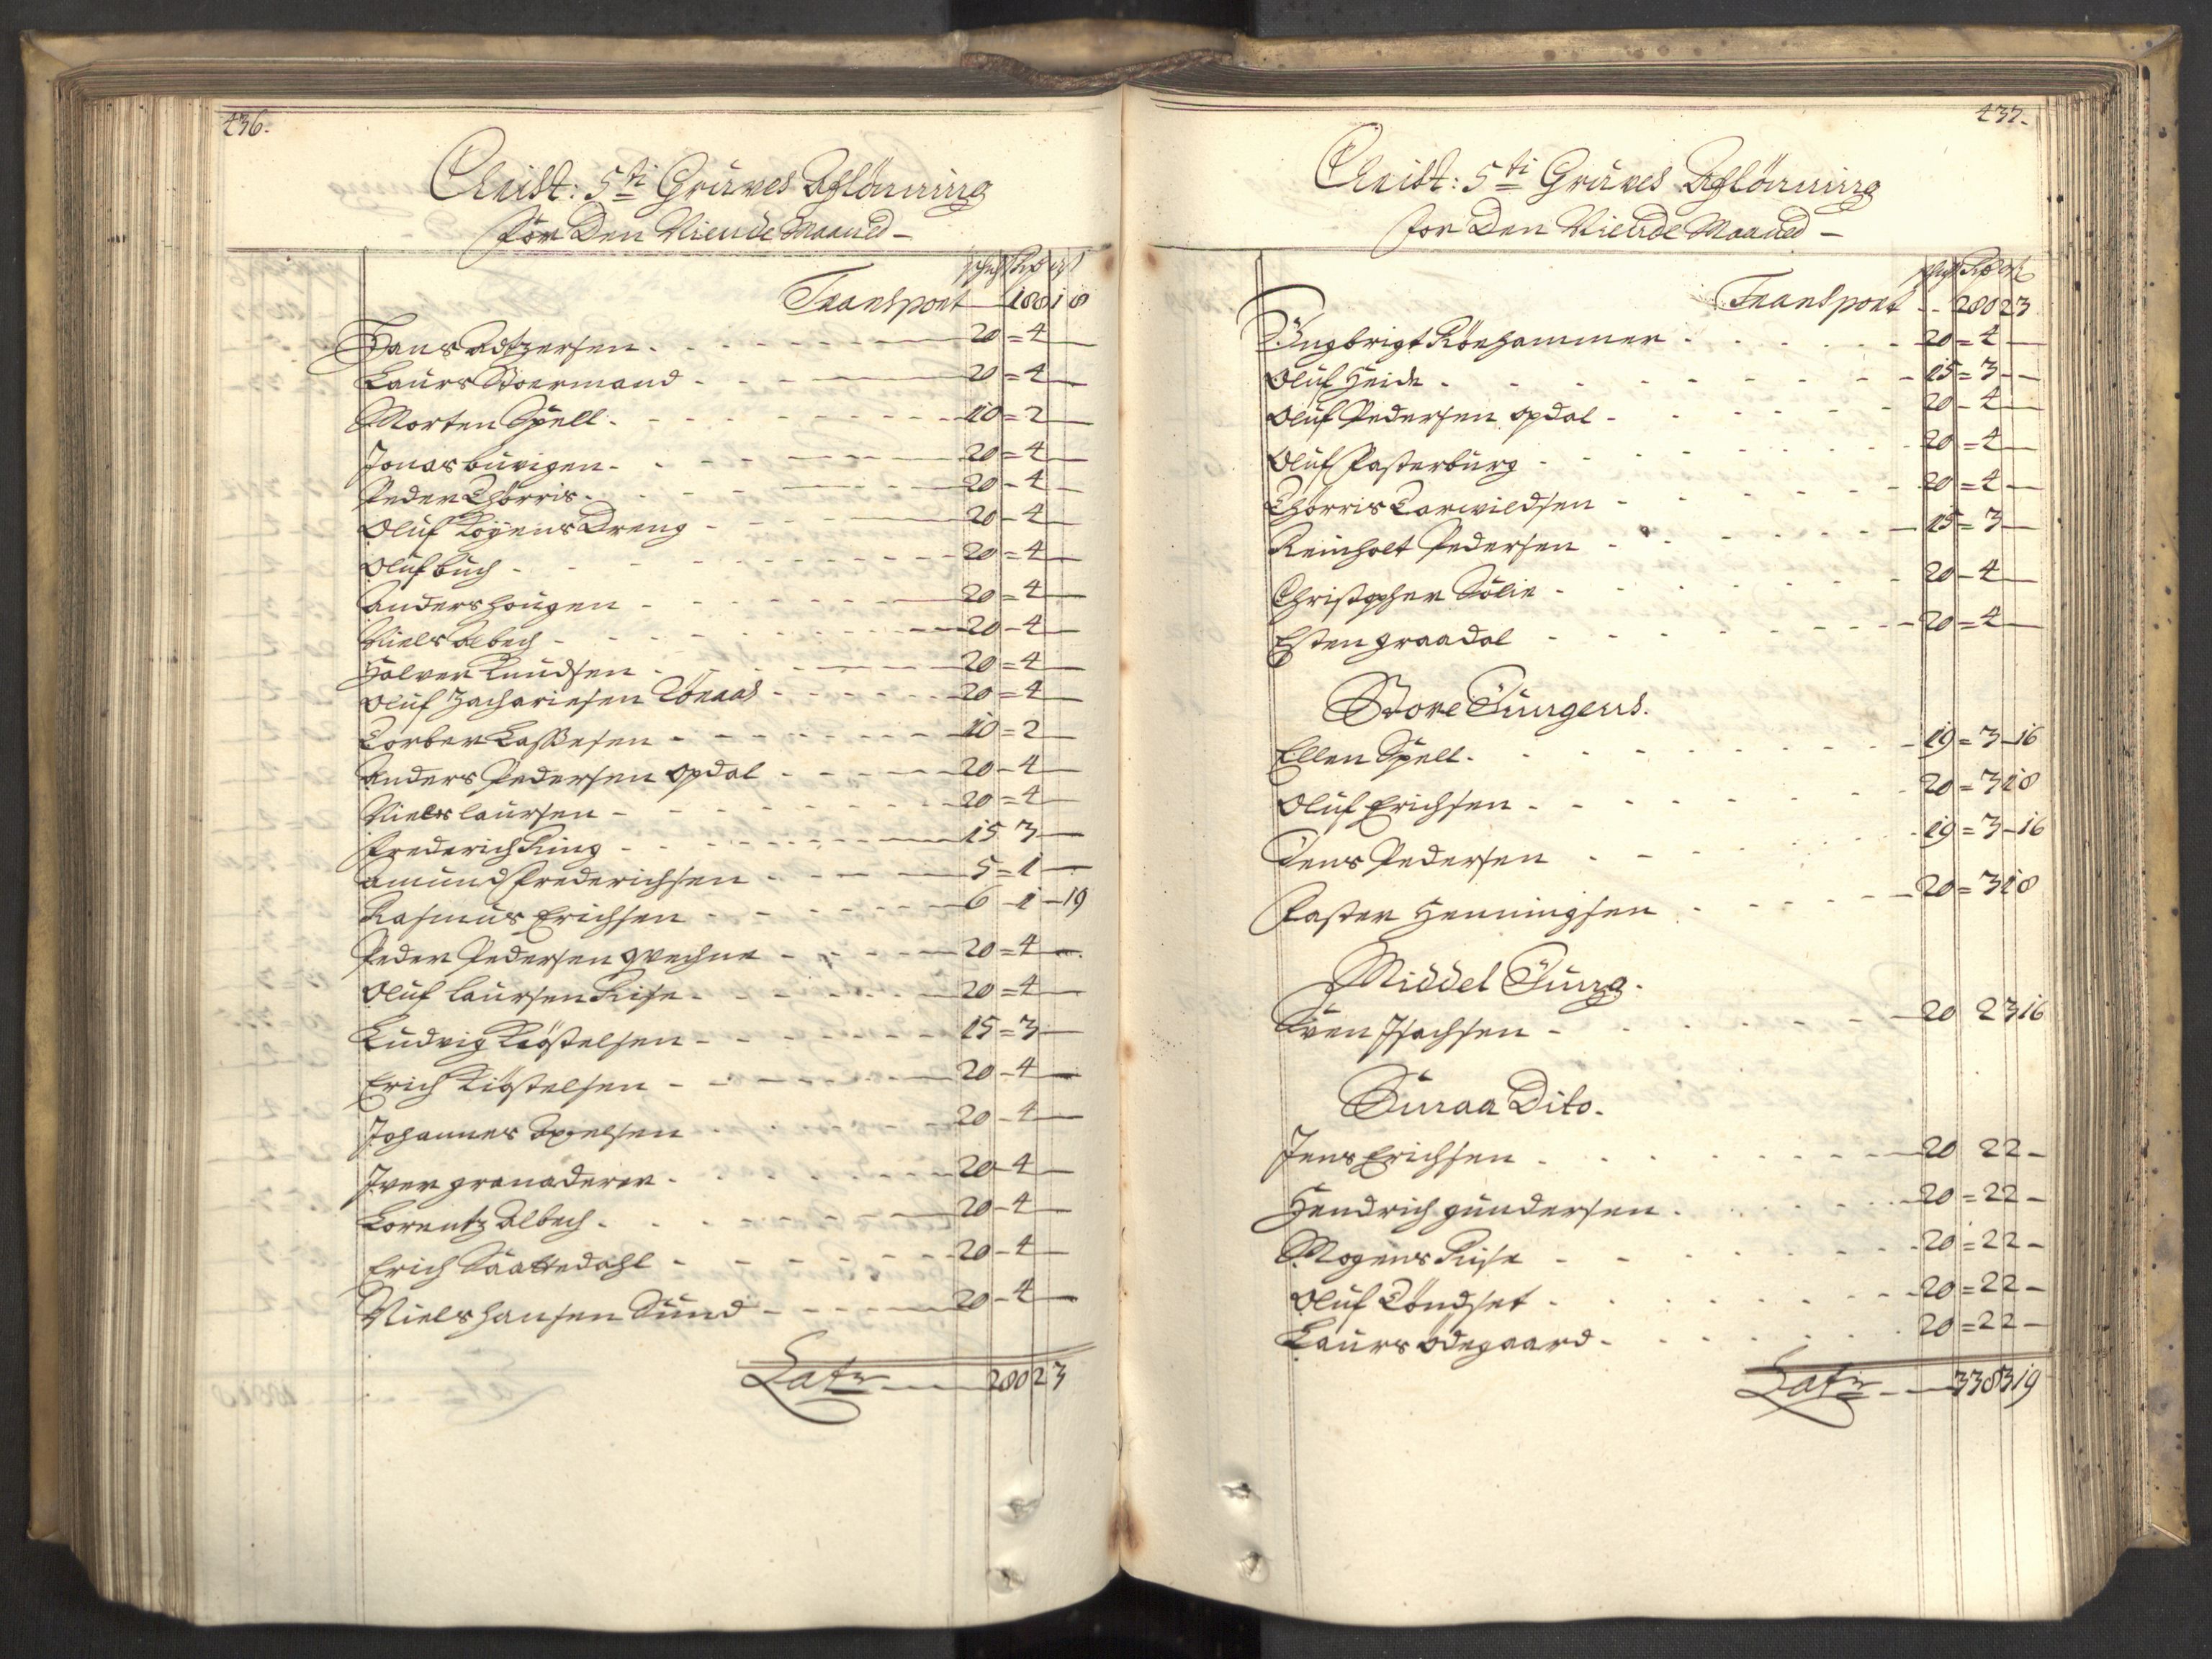 436.
Christ: 5ti Gruves Aflönning
for Den Niende Maaned -
Transport 188 1 8
Hans 20 = 4
Laurs Stoermand 20 = 4
Morten Spell 10 = 2
Jonas buvigen 20 = 4
Peder Thorris 20 - 4
Oluf Royens Dreng 20 - 4
Oluf buch 20 = 4
Anders hougen 20 = 4
Niels Albech 20 - 4
Halver Knudsen 20 = 4
Oluf Zachariesen Tönaas 20 = 4
Torber Lassesen 10 = 2
Anders Pedersen Opdal 20 - 4
Niels laursen 20 = 4
Frederich Ring 15 3
Amund Frederichsen 5 = 1
Rasmus Erichsen 6 - 1 - 19
Peder Pedersen 20 = 4
Oluf laursen Rise 20 = 4
Ludvig Kiöstelsen 15 = 3
Erich Kiöstelsen 20 - 4
Johannes Axelsen 20 - 4
Iver granaderer 20 - 4
Lorentz Albech 20 - 4
Erich Saattedahl 20 - 4
Niels hansen Sund 20 - 4
Latr 280 2 3
437.
Christ: 5ti Gruves Aflönning
for Den Niende Maaned -
Transport 280 2 3
Ingbrigt Rönhammer 20 = 4
Oluf Heide 15 = 3
Oluf Pedersen opdal 20 - 4
Oluf Pasterburg 20 = 4
Thorris Torvildsen 20 = 4
Reinholt Pedersen 15 = 3
Christopher Sölie 20 - 4
Esten graadal 20 = 4
Store Jungens.
Ellen Spell 19 = 3 - 16
Oluf Erichsen 20 = 3 1 8
Jens Pedersen 19 = 3 - 16
Paster Henningsen 20 = 3 1 8
Middel Jung.
Sven Isachsen 20 2 3 16
Smaa Dito.
Jens Erichsen 20 2 2 -
Hendrich gundersen 20 = 2 2 -
Mogens Rise 20 = 2 2 -
Oluf Töndset 20 = 2 2 -
Laurs Ödegaard 20 = 2 2 -
Latr 338 3 19